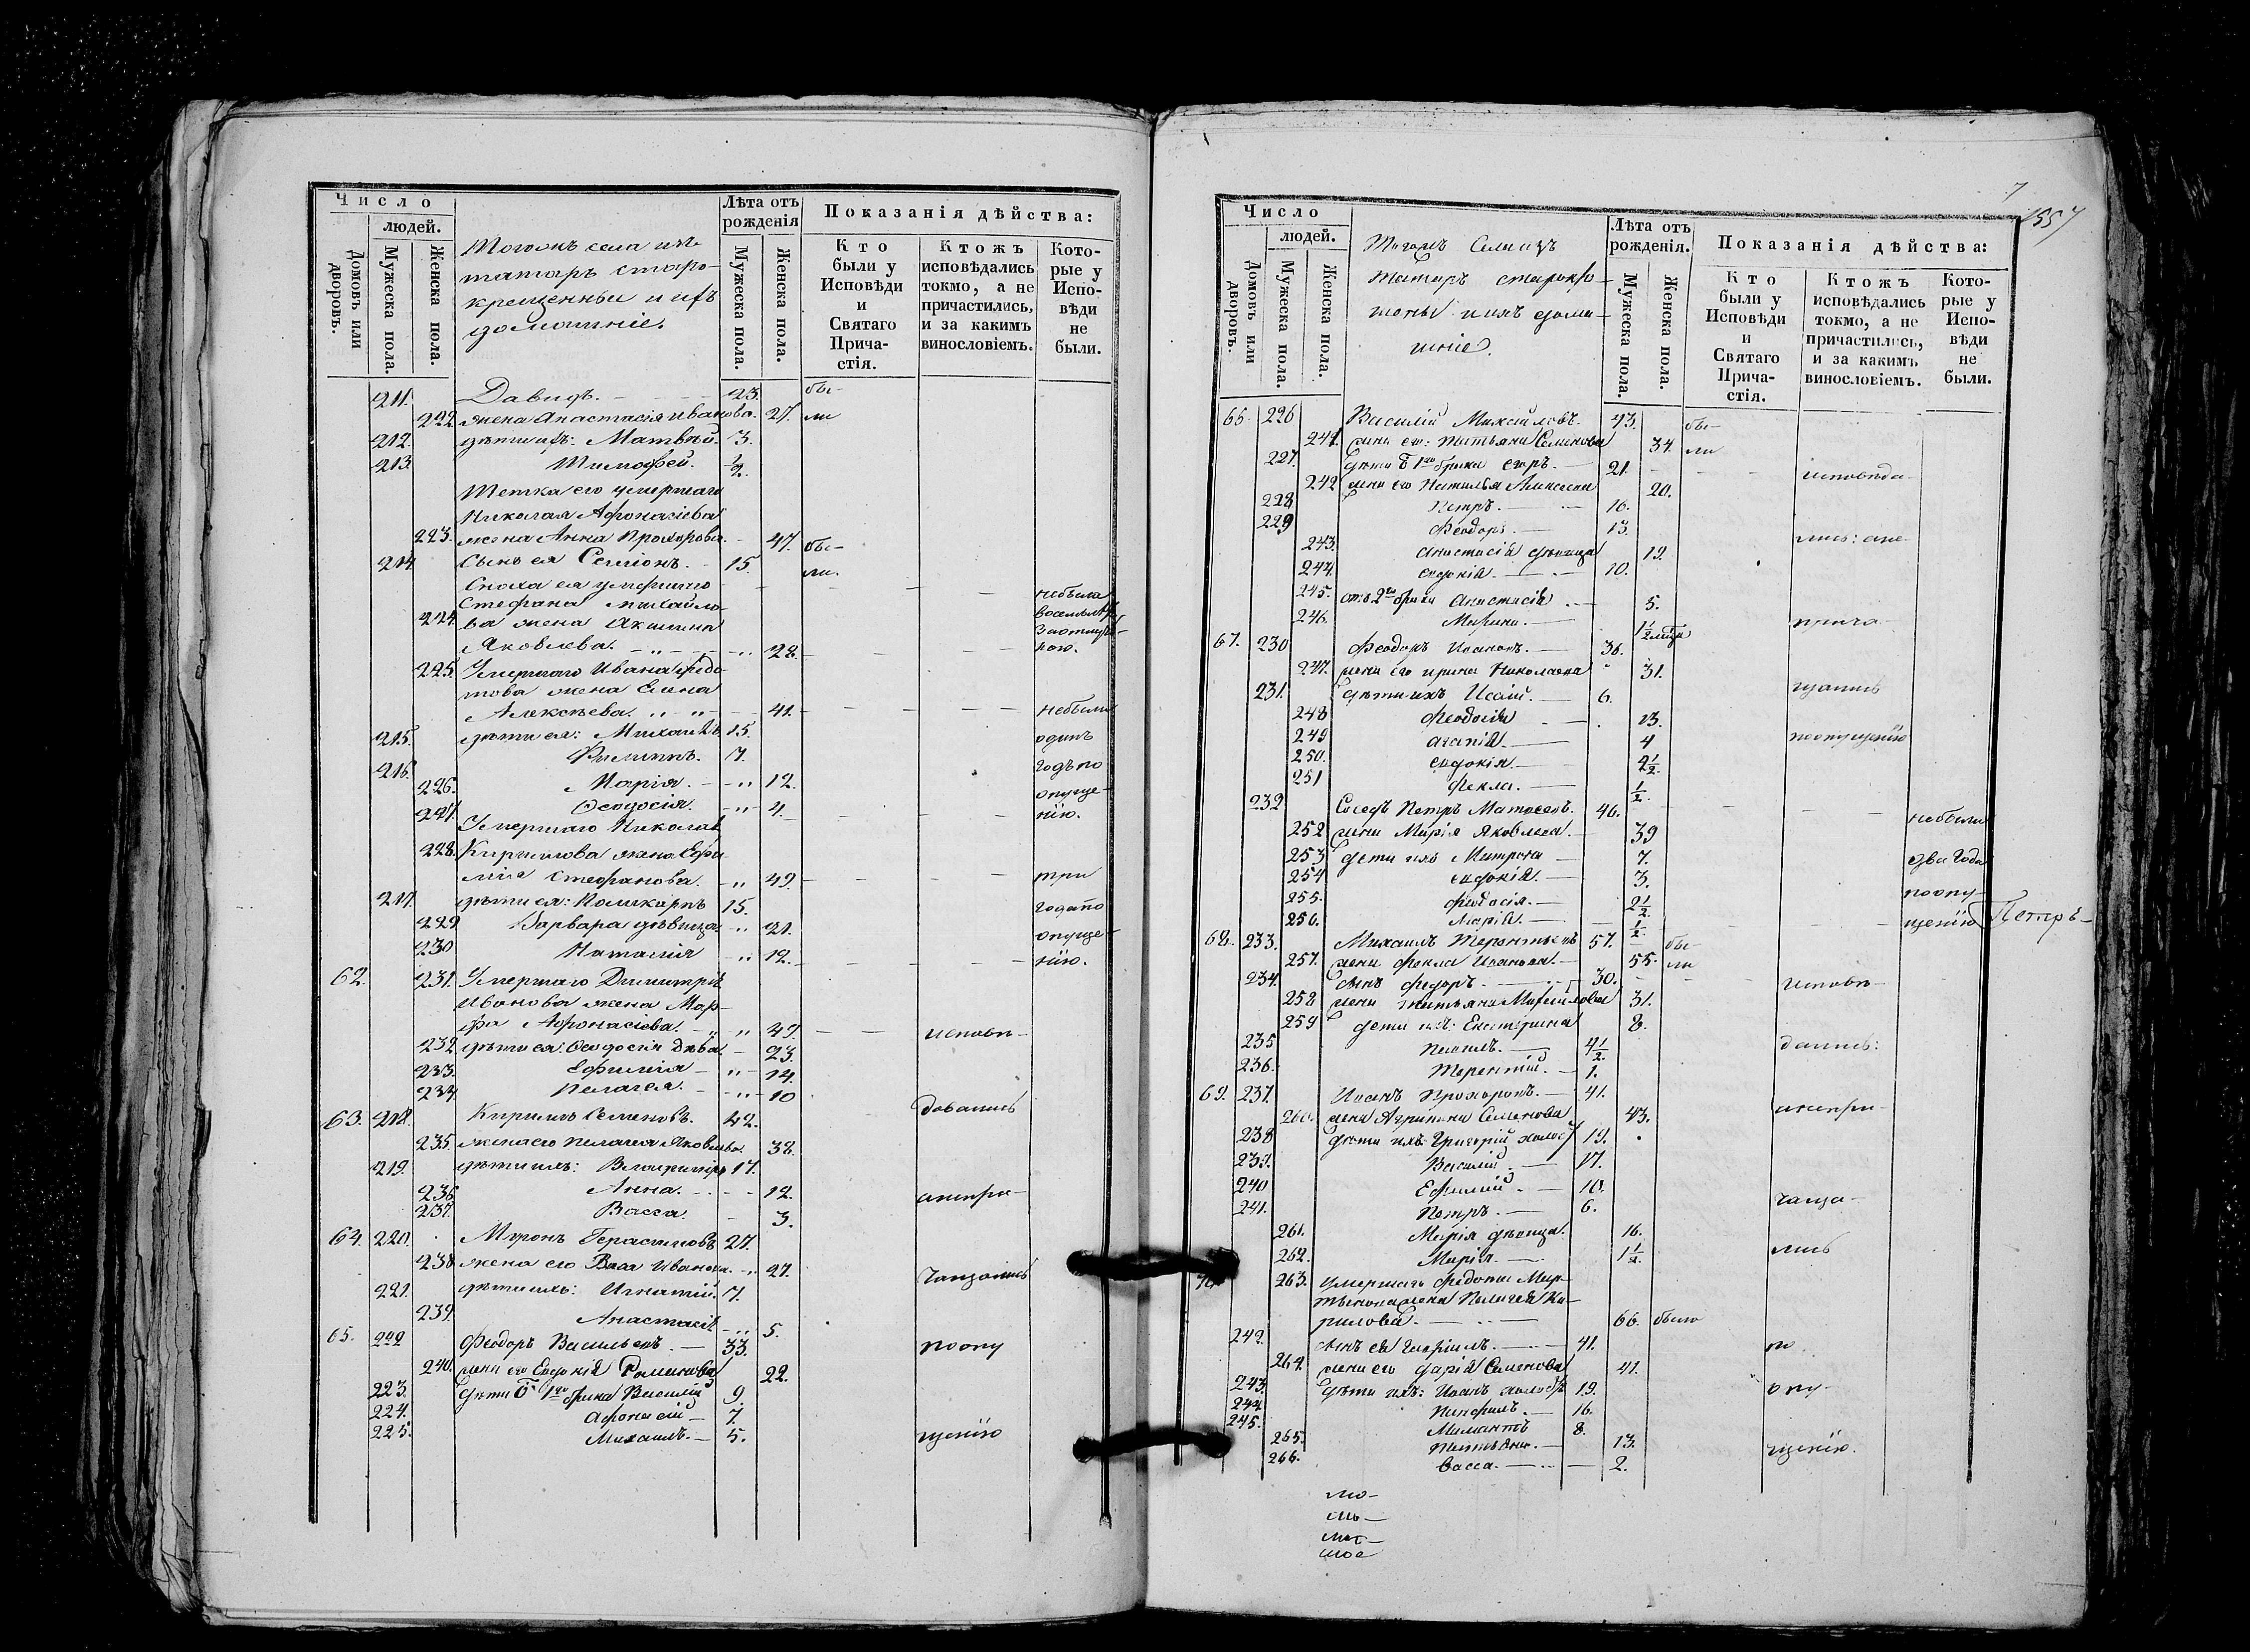 Число
людей.
Домовъ или дворовъ.
Мужеска пола.
Женска пола.
Тогожъ села изъ
татаръ старо-
крещенныи и ихъ
домашніе.
Лѣта отъ рожденія
Мужеска пола.
Женска пола.
Показанія дѣйства:
Кто были у Исповѣди и Святаго Прича-стія.
Ктожъ исповѣдались токмо, а не причастились, и за какимъ винословіемъ.
Кото-рые у Испо-вѣди не были.
211. Давидъ. 23. бы-
222. жена Анастасія Иванова. 27. ли
212. дѣти ихъ: Матвѣй. 3.
213. Тимофей. 1/2.
Тетка его умершаго
Николая Афонасіева
223. жена Анна Прохорова. 47. бы-
214. Сынъ ея Семіонъ. 15. ли.
Сноха ея умершаго небыла
Стефана Михайло-
224. ва жена Акилина
Яковлева. 28.
225. Умершаго Ивана Федо-
това жена Елена
Алексѣева. 41. небыли
215. дѣти ея: Михаилъ 15. одинъ
216. Филиппъ. 7. годъ по
226. Марія. 12. опуще-
227. Ѳеодосія. 4. нію.
Умершаго Николая
228. Кирилова жена Ефи-
мія Стефанова. 49. три
217. дѣти ея: Поликарпъ 15. года по
229 Варвара дѣвица 21. опуще-
230 Наталія 12. нію.
62. 231. Умершаго Димитрія
Иванова жена Мар-
фа Афонасіева. 49. исповѣ-
232 дѣти ея: Ѳеодосія дѣва. 23.
233. Ефимія 14.
234. Пелагея. 10
63. 218. Кирилъ Семеновъ. 42. довались
235. жена его Пелагея Яковлева. 38.
219. дѣти ихъ: 17.
236 Анна. 12. анепри-
237. Васса. 3.
64. 220. Миронъ Герасимовъ 27.
238 жена его Васса Иванова. 27. чащались
221. дѣти ихъ: Игнатій. 7.
239. Анастасія 5.
65. 222 Феодоръ Васильевъ. 33. поопу
240. жена его Евдокія Романова 22.
223. дѣти отъ 1го брака Василій 9.
224. Афонасій 7.
225. Михаилъ. 5. щенію
7
1557
Число
людей.
Домовъ или дворовъ.
Мужеска пола.
Женска пола.
Тогожъ Села изъ
Татаръ старокре
щены и ихъ дома-
шніе.
Лѣта отъ рожденія.
Мужеска пола.
Женска пола.
Показанія дѣйства:
Кто были у Исповѣди и Святаго Прича-стія.
Ктожъ исповѣдались токмо, а не причастились, и за какимъ винословіемъ.
Кото-рые у Испо-вѣди не были.
65. 226 Василій Михайловъ. 43. бы-
241. жена его: Татьяна Семенова 34. ли
227. Дѣти отъ 1го брака Егоръ. 21. исповѣда-
242 жена его Наталья Алексеева 20.
228 Петръ. 16.
229 Феодоръ. 13.
243. Анастасія дѣвица 19. лись: ане-
244. Евдокія. 10.
245. отъ 2го брака Анастасія 5.
246. Марина. 1 1/2 лѣта прича-
67. 230 Феодоръ Ивановъ. 36.
247. жена его Ирина Николаева 31.
231. дѣти ихъ Исаій. 6. щались
248 Феодосія 13.
249 Агапія. 4 поопущенію
250. Евдокія. 2 1/2.
251 Фекла. 1/2.
232. Соседъ Петръ Матвеевъ. 46. небыли
252 жена Марія Яковлева. 39
253 дети ихъ Матрона 7. два года
254 Евдокія. 3.
255. Феодосія. 2 1/2 поопу-
256. Марія. 1/2. щенію Петръ-
68. 233. Михаилъ Терентьевъ 57. бы-
257. жена Фекла Иванова. 55. ли
234. Сынъ Федоръ. 30. исповѣ-
258 жена Татьяна Михайлова 31.
259 дети ихъ: Екатерина 8.
235 4 1/2 дались:
236. Терентій. 1.
69. 237. Иванъ Прохоровъ. 41.
260. жена Агрипина Семенова 43. анепри-
238 дѣти ихъ Григорій холос 19.
239. Василій. 17.
240 Ефимій. 10. чаща-
241. Петръ. 6.
261. Марія дѣвица. 16.
262. Марія. 1 1/2. лись
70. 263. Умершаго Федота Мар-
тынова жена Пелагея Ки-
рилова. 66. была
242. сынъ ея Гавріилъ. 41. по
264. жена его Дарія Семенова 41.
243. Дѣти ихъ: Иванъ холостъ 19. опу-
244 Панфилъ. 16.
245. 8.
265. Татьяна. 13. щенію.
266. Васса. 2.